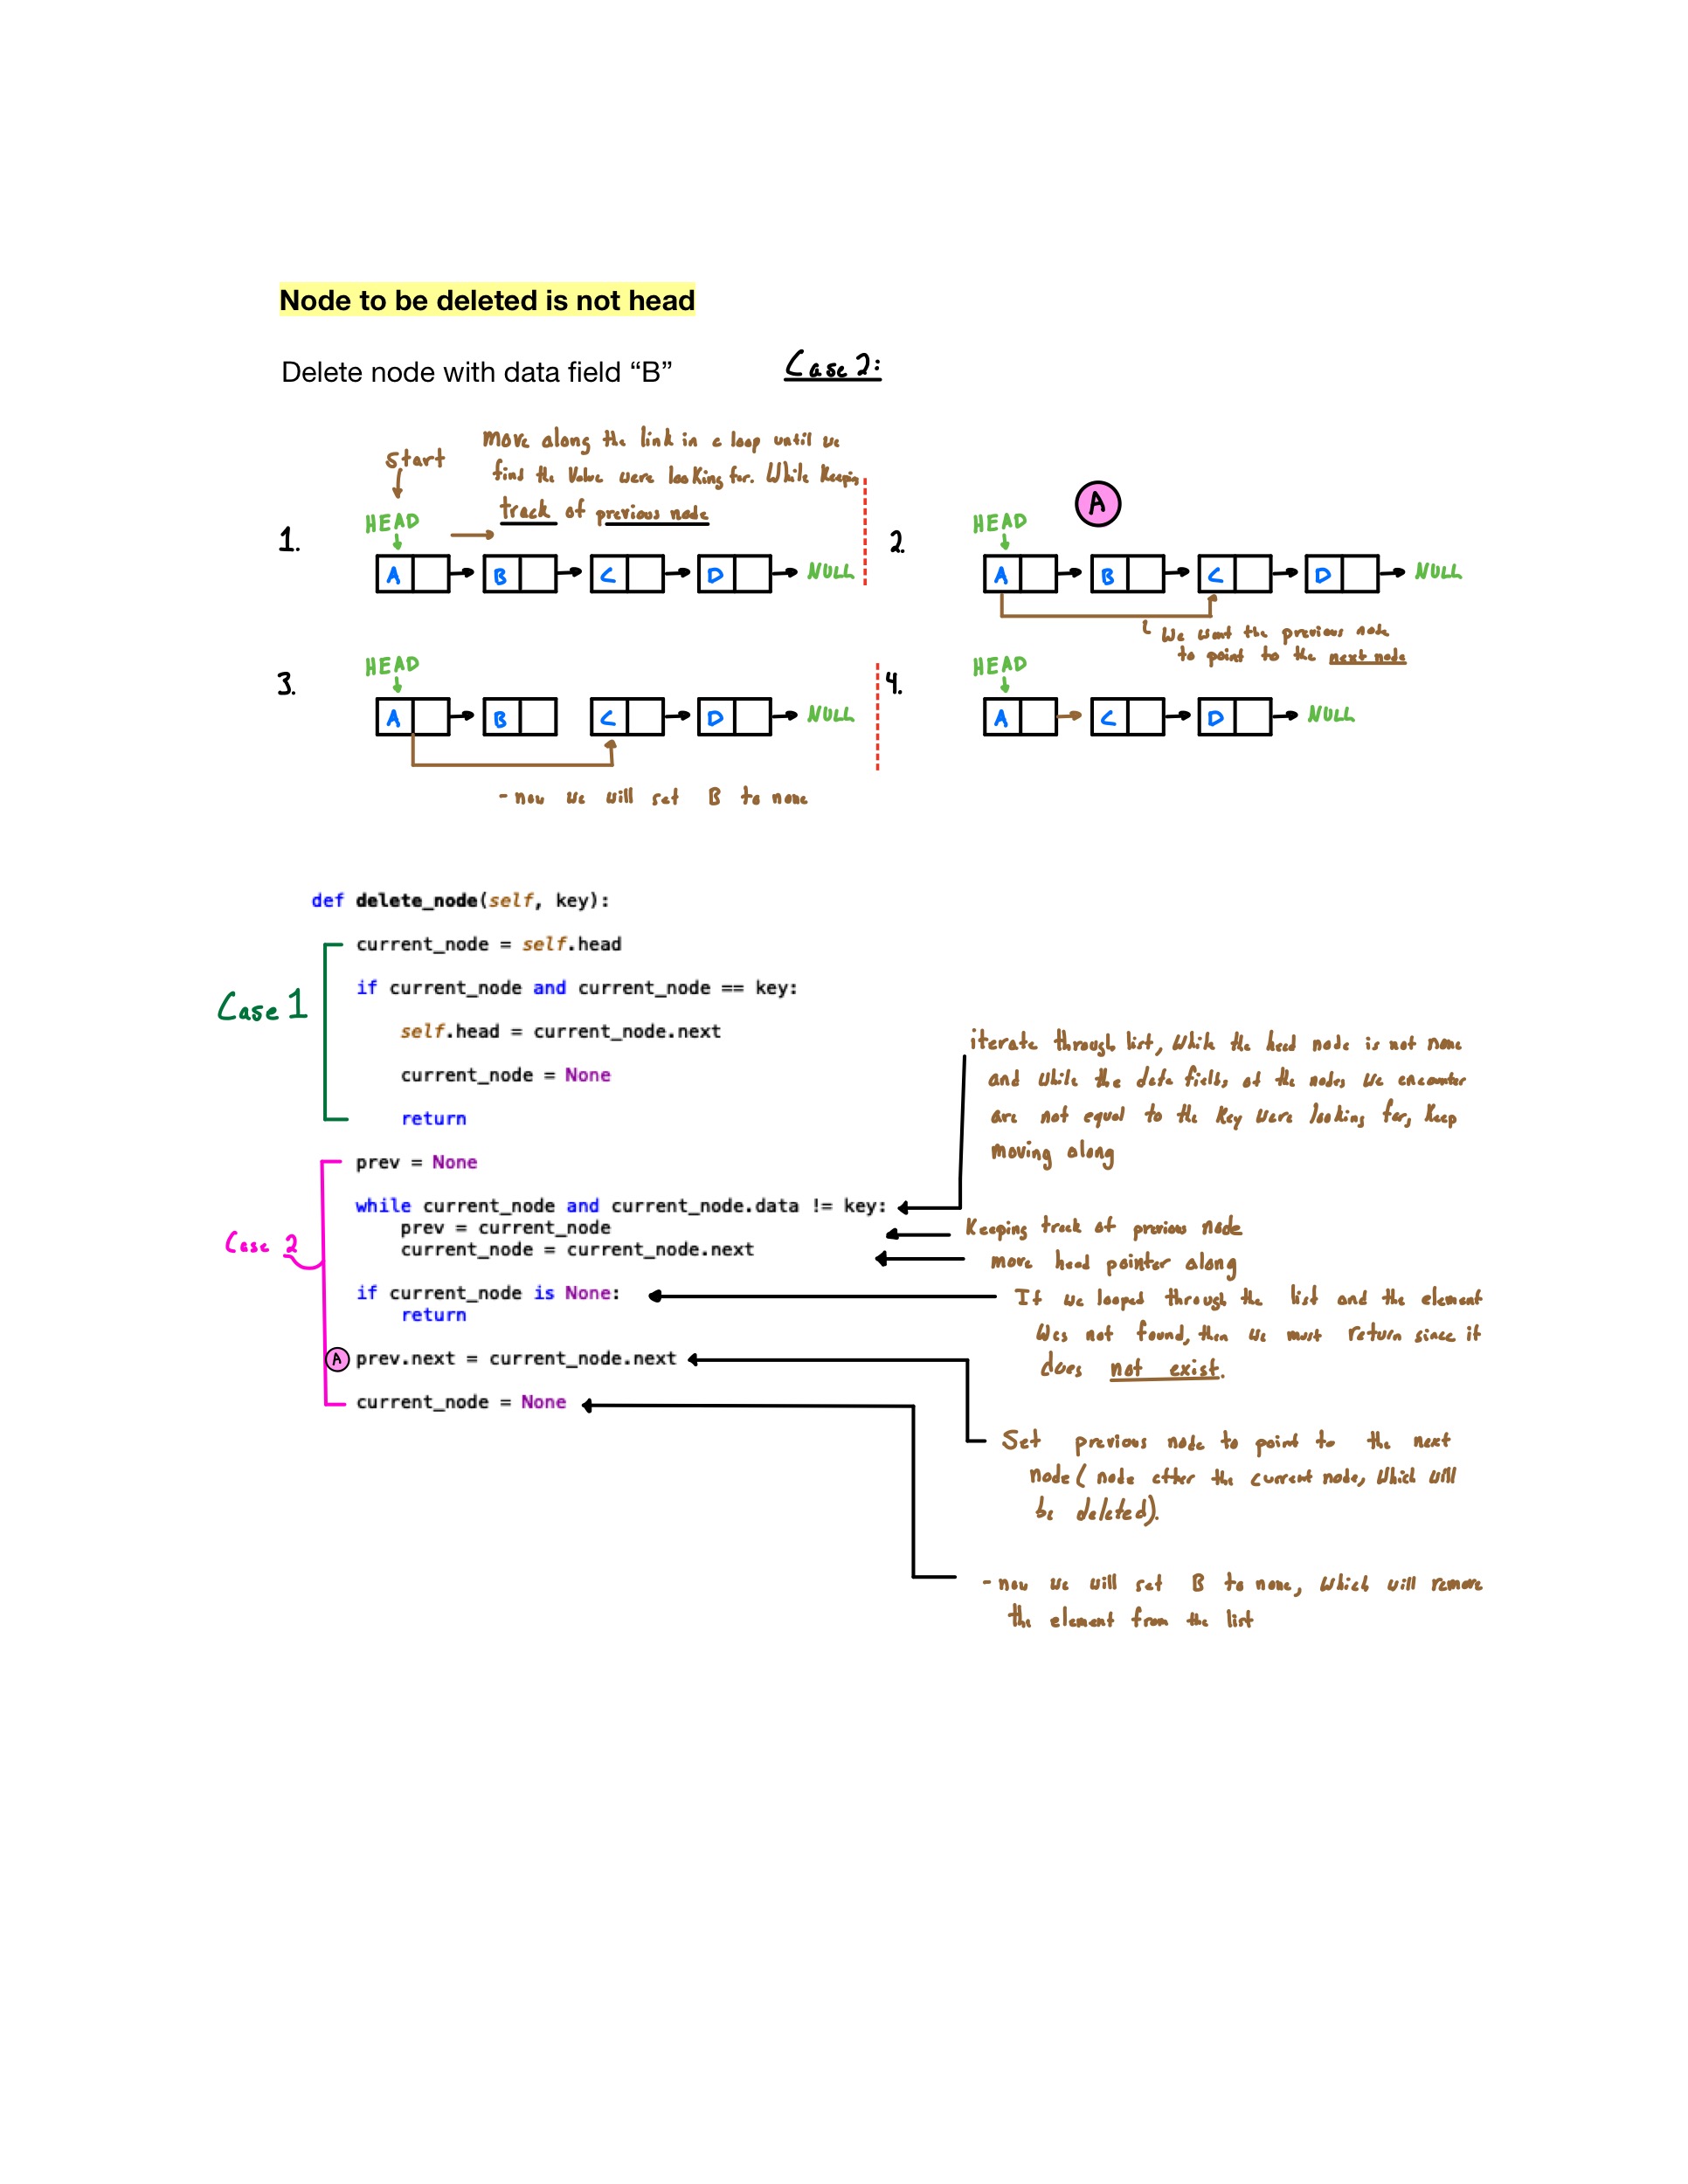 Node to be deleted is not head
Delete node with data field “B”
Case 2:
start
Move along the link in a loop until we
find the value were looking for. While keeping
track of previous node
1.
HEAD
A B C D NULL
2.
A
HEAD
A B C D NULL
We want the previous node
to point to the next node
3.
HEAD
A B C D NULL
- now we will set B to none
4.
HEAD
A C D NULL
def delete_node(self, key):
Case 1
current_node = self.head
if current_node and current_node == key:
self.head = current_node.next
current_node = None
return
Case 2
prev = None
while current_node and current_node.data != key:
prev = current_node
current_node = current_node.next
if current_node is None:
return
A prev.next = current_node.next
current_node = None
iterate through list, while the head node is not none
and while the data fields of the nodes we encounter
are not equal to the key were looking for, keep
moving along
Keeping track of previous node
move head pointer along
If we looped through the list and the element
was not found, then we must return since it
does not exist.
Set previous node to point to the next
node ( node after the current node, which will
be deleted).
- now we will set B to none, which will remove
the element from the list